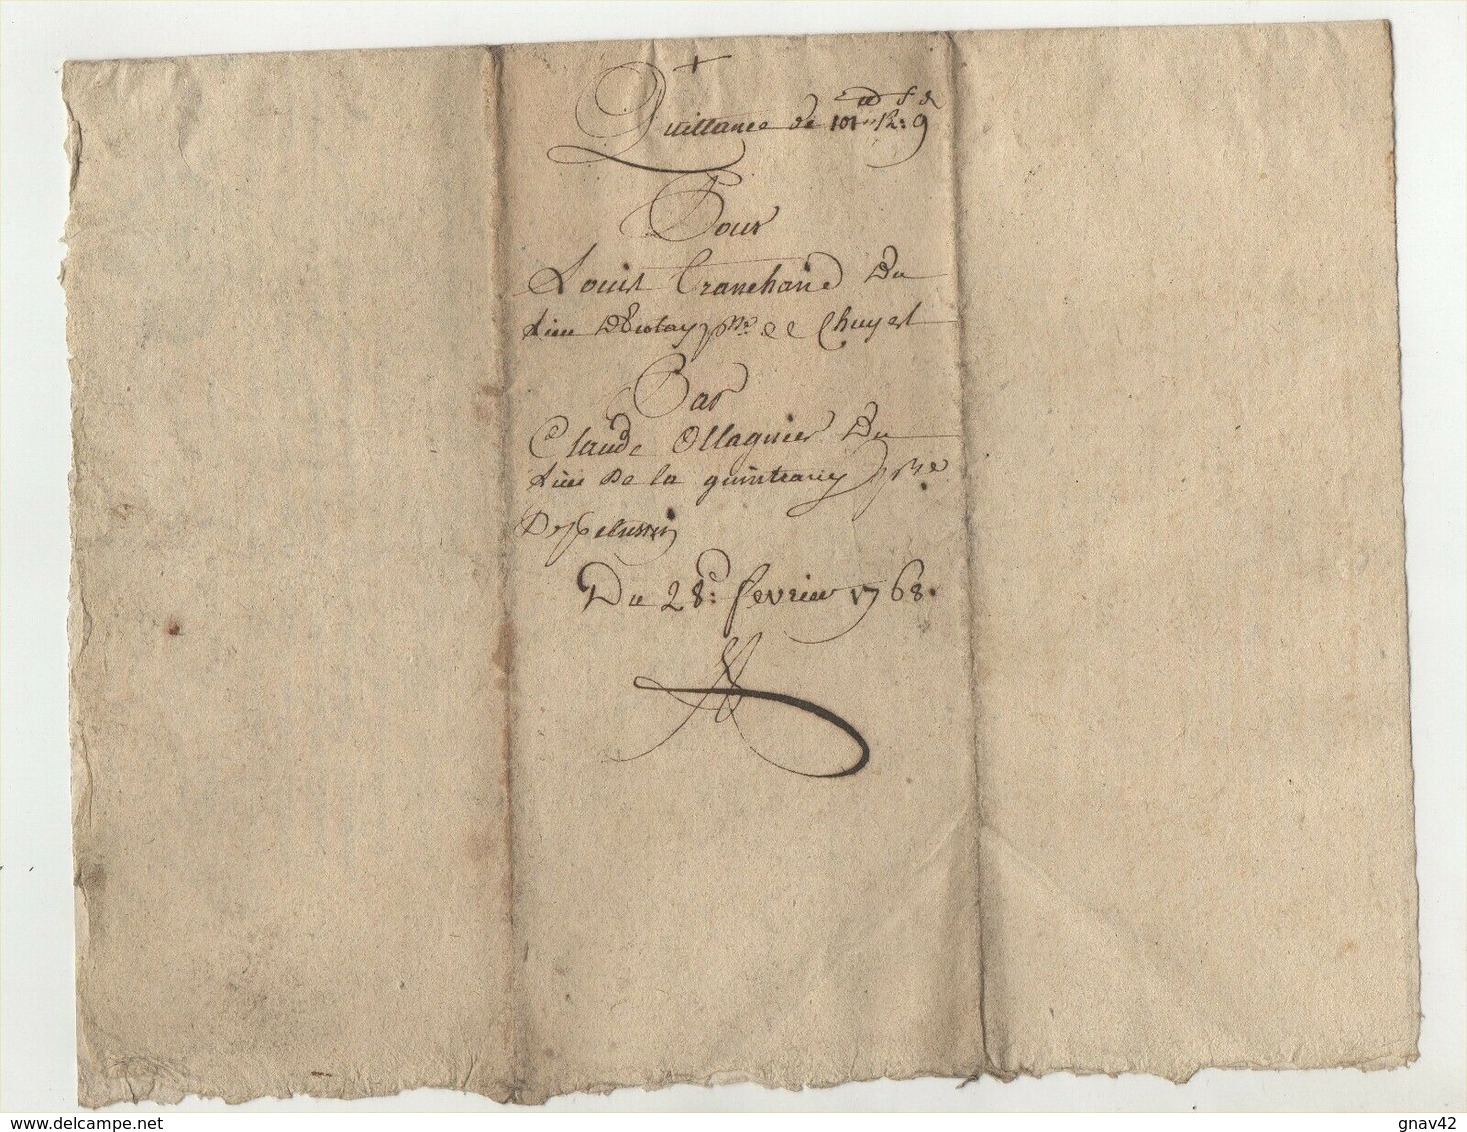 Quittance de 101ᵗᵗ 12ˢ 9ᵈ
Pour
Louis Tranchand Du
Lieu psse de Chuyet
Par
Claude Ollagnier Du
Lieu De la quintrany psse
De pelussin
Du 28e. fevrier 1768.
www.delcampe.net
gnav42